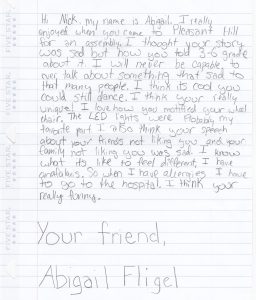 Hi Nick, my name is Abigail. I really
enjoyed when you came to Pleasant Hill
for an assembly. I thought your story
was sad but how you told 3-6 grade
about it I will never be capable, to
ever talk about something that sad to
that many people. I think its cool you
could still dance. I think your really
unique! I love how you motified your wheel
chair. The LED lights were Probably my
favorite part. I also think your speech
about your friends not liking you and your
family not liking you was sad. I know
what its like to feel different, I have
So when I have allergies I have
to go to the hospital. I think your
really funny.
Your friend,
Abigail Fligel
FIVE STAR
FIVE STAR
FIVE STAR
FIVE STAR